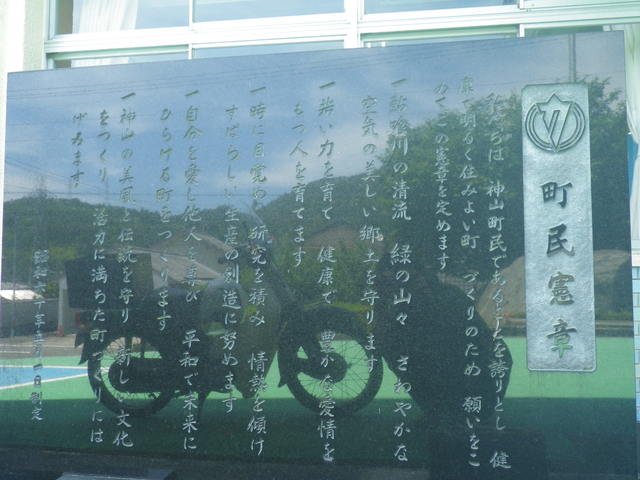 町民憲章
私たちは 神山町民であることを誇りとし 健
康で明るく住みよい町 づくりのため 願いをこ
めてこの憲章を定めます
一鮎喰川の清流 緑の山々 さわやかな
空気の美しい郷土を守ります
一若い力を育て 健康で 豊かな愛情を
もつ人を育てます
一時に目覚め 研究を積み 情熱を傾け
すばらしい生産の創造に努めます
一自分を愛し他人を尊び 平和で未来に
ひらける町をつくります
一神山の美風と伝統を守り 新しい文化
をつくり 活力に満ちた町づくりには
げみます